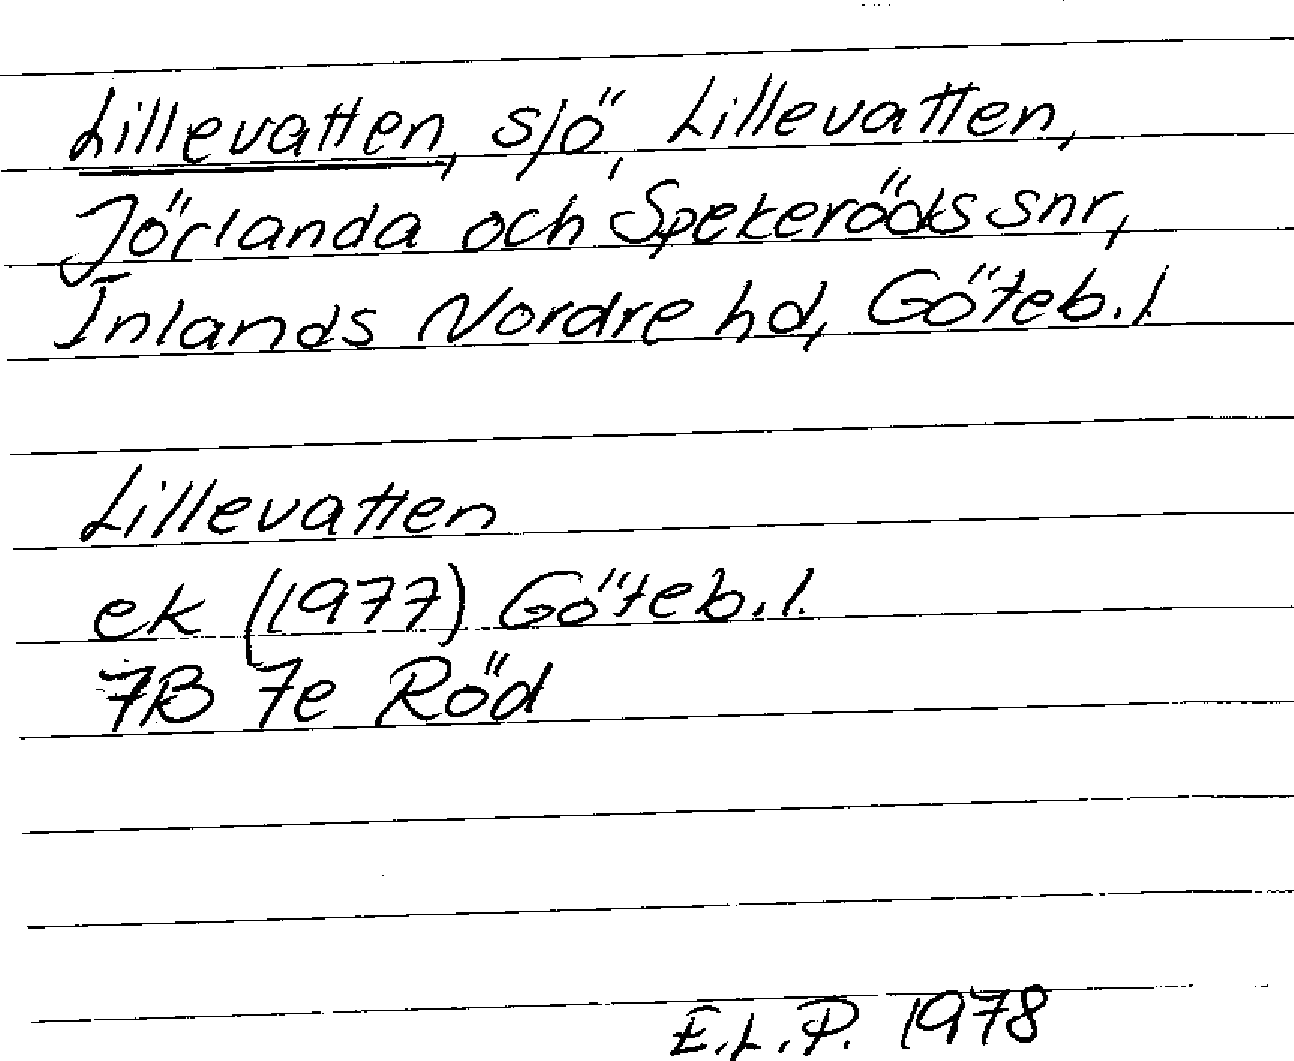 Lillevatten, sjö, Lillevatten,
Jörlanda och Spekeröds snr,
Inlands Nordre hd, Göteb. l.
Lillevatten
ek (1977) Göteb. l.
7B 7e Röd
E.L.P. 1978